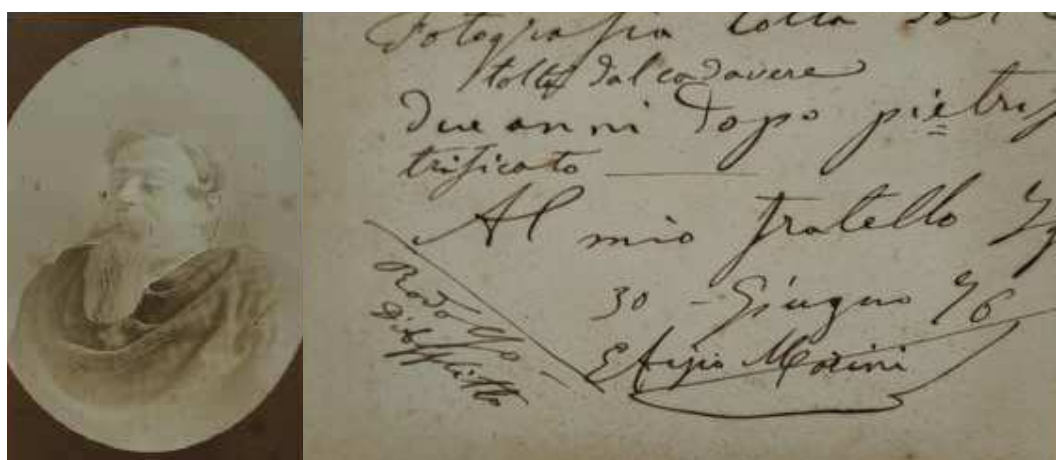 Fotografia tolta dal
tolta dal cadavere
due anni dopo pietri
trificato
Al mio fratello
30 - Giugno 76
Efisio Marini
Rodolfo